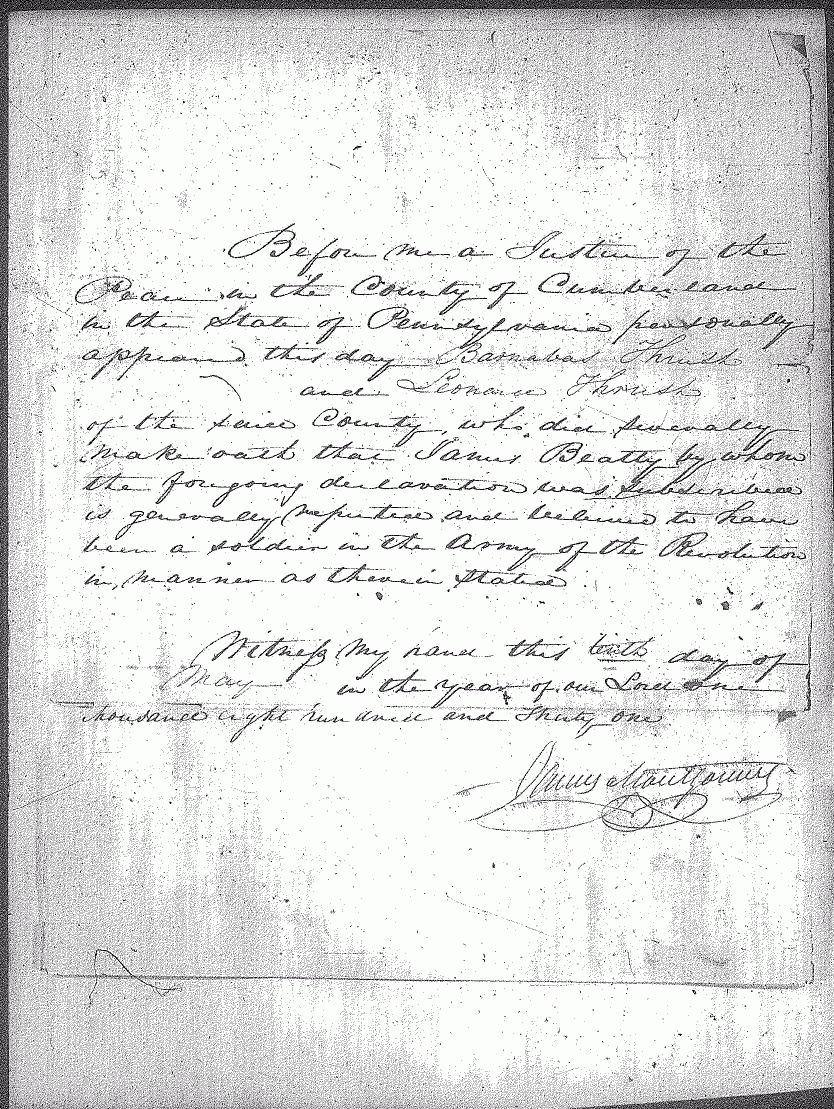 Before me a Justice of the
Peace in the County of Cumberland
in the State of Pennsylvania personally
appeared this day Barnabas Thrush
and Leonard Thrush
of the said County, who did severally
make oath that James Beatty by whom
the foregoing declaration was subscribed
is generally reputed and believed to have
been a soldier in the Army of the Revolution
in manner as therein stated
Witness my hand this tenth day of
May in the year of our Lord one
thousand eight hundred and thirty one
James Montgomery